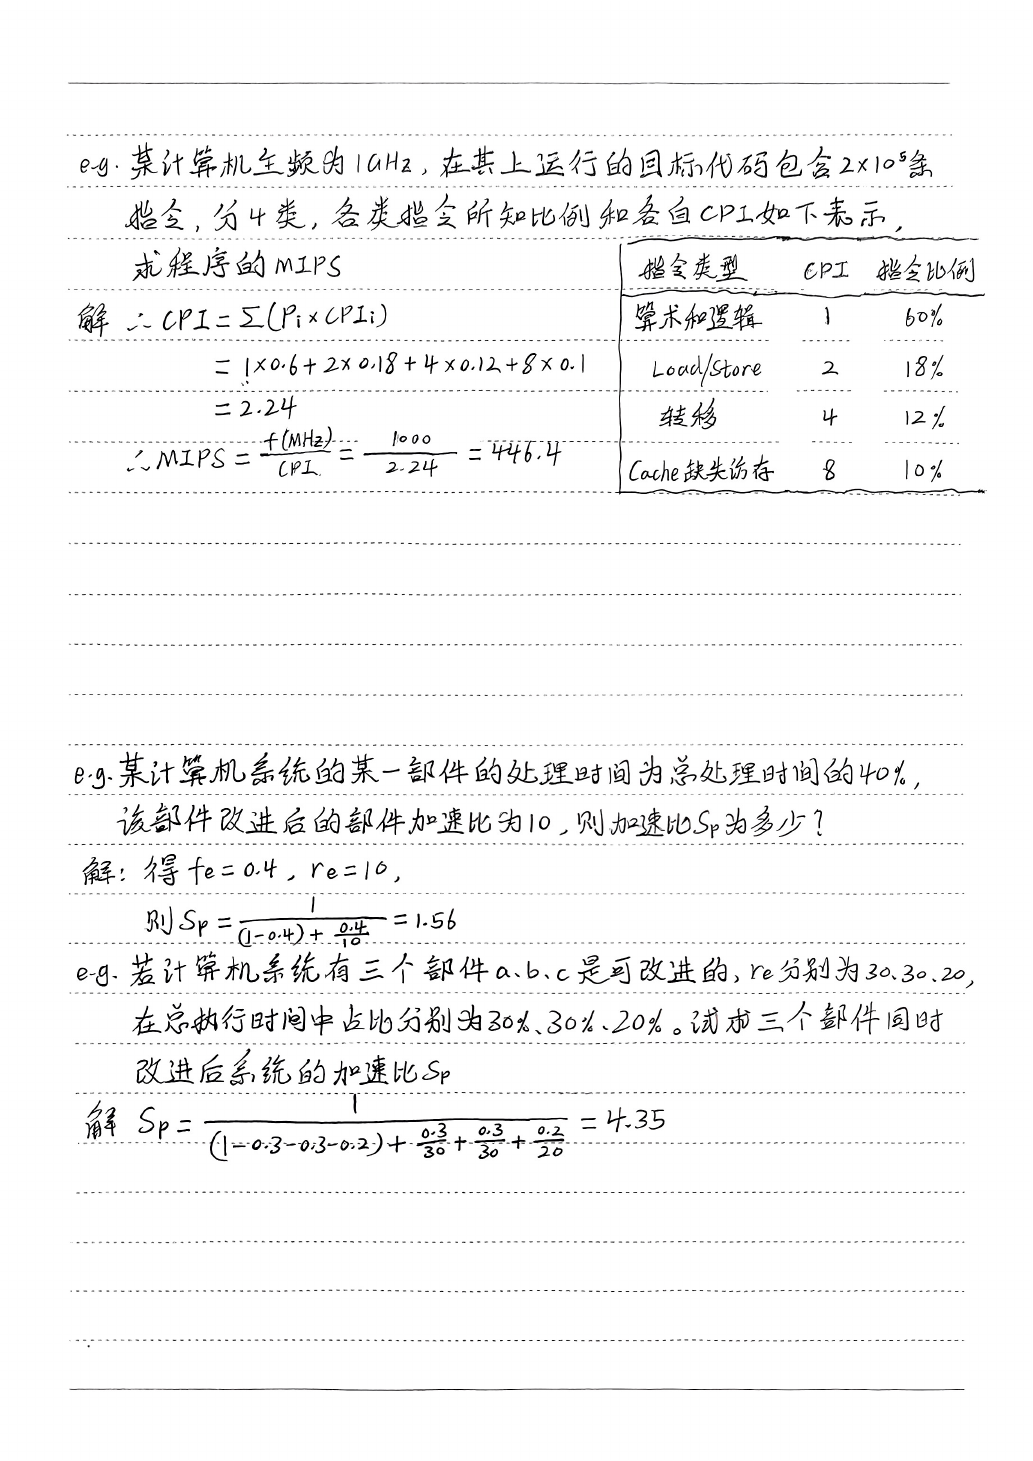 e.g. 某计算机主频为1GHz，在其上运行的目标代码包含2×10⁵条
指令，分4类，各类指令所知比例和各自CPI如下表示，
求程序的MIPS
指令类型 CPI 指令比例
算术和逻辑 1 60%
Load/Store 2 18%
转移 4 12%
Cache缺失访存 8 10%
解 ∴ CPI = Σ(Pi×CPIi)
= 1×0.6+2×0.18+4×0.12+8×0.1
= 2.24
∴ MIPS = f(MHz)/CPI = 1000/2.24 = 446.4
e.g. 某计算机系统的某一部件的处理时间为总处理时间的40%，
该部件改进后的部件加速比为10，则加速比Sp为多少？
解：得 fe=0.4，re=10，
则 Sp = 1/((1-0.4)+0.4/10) = 1.56
e.g. 若计算机系统有三个部件a、b、c是可改进的，re分别为30、30、20，
在总执行时间中占比分别为30%、30%、20%。试求三个部件同时
改进后系统的加速比Sp
解 Sp = 1/((1-0.3-0.3-0.2)+0.3/30+0.3/30+0.2/20) = 4.35